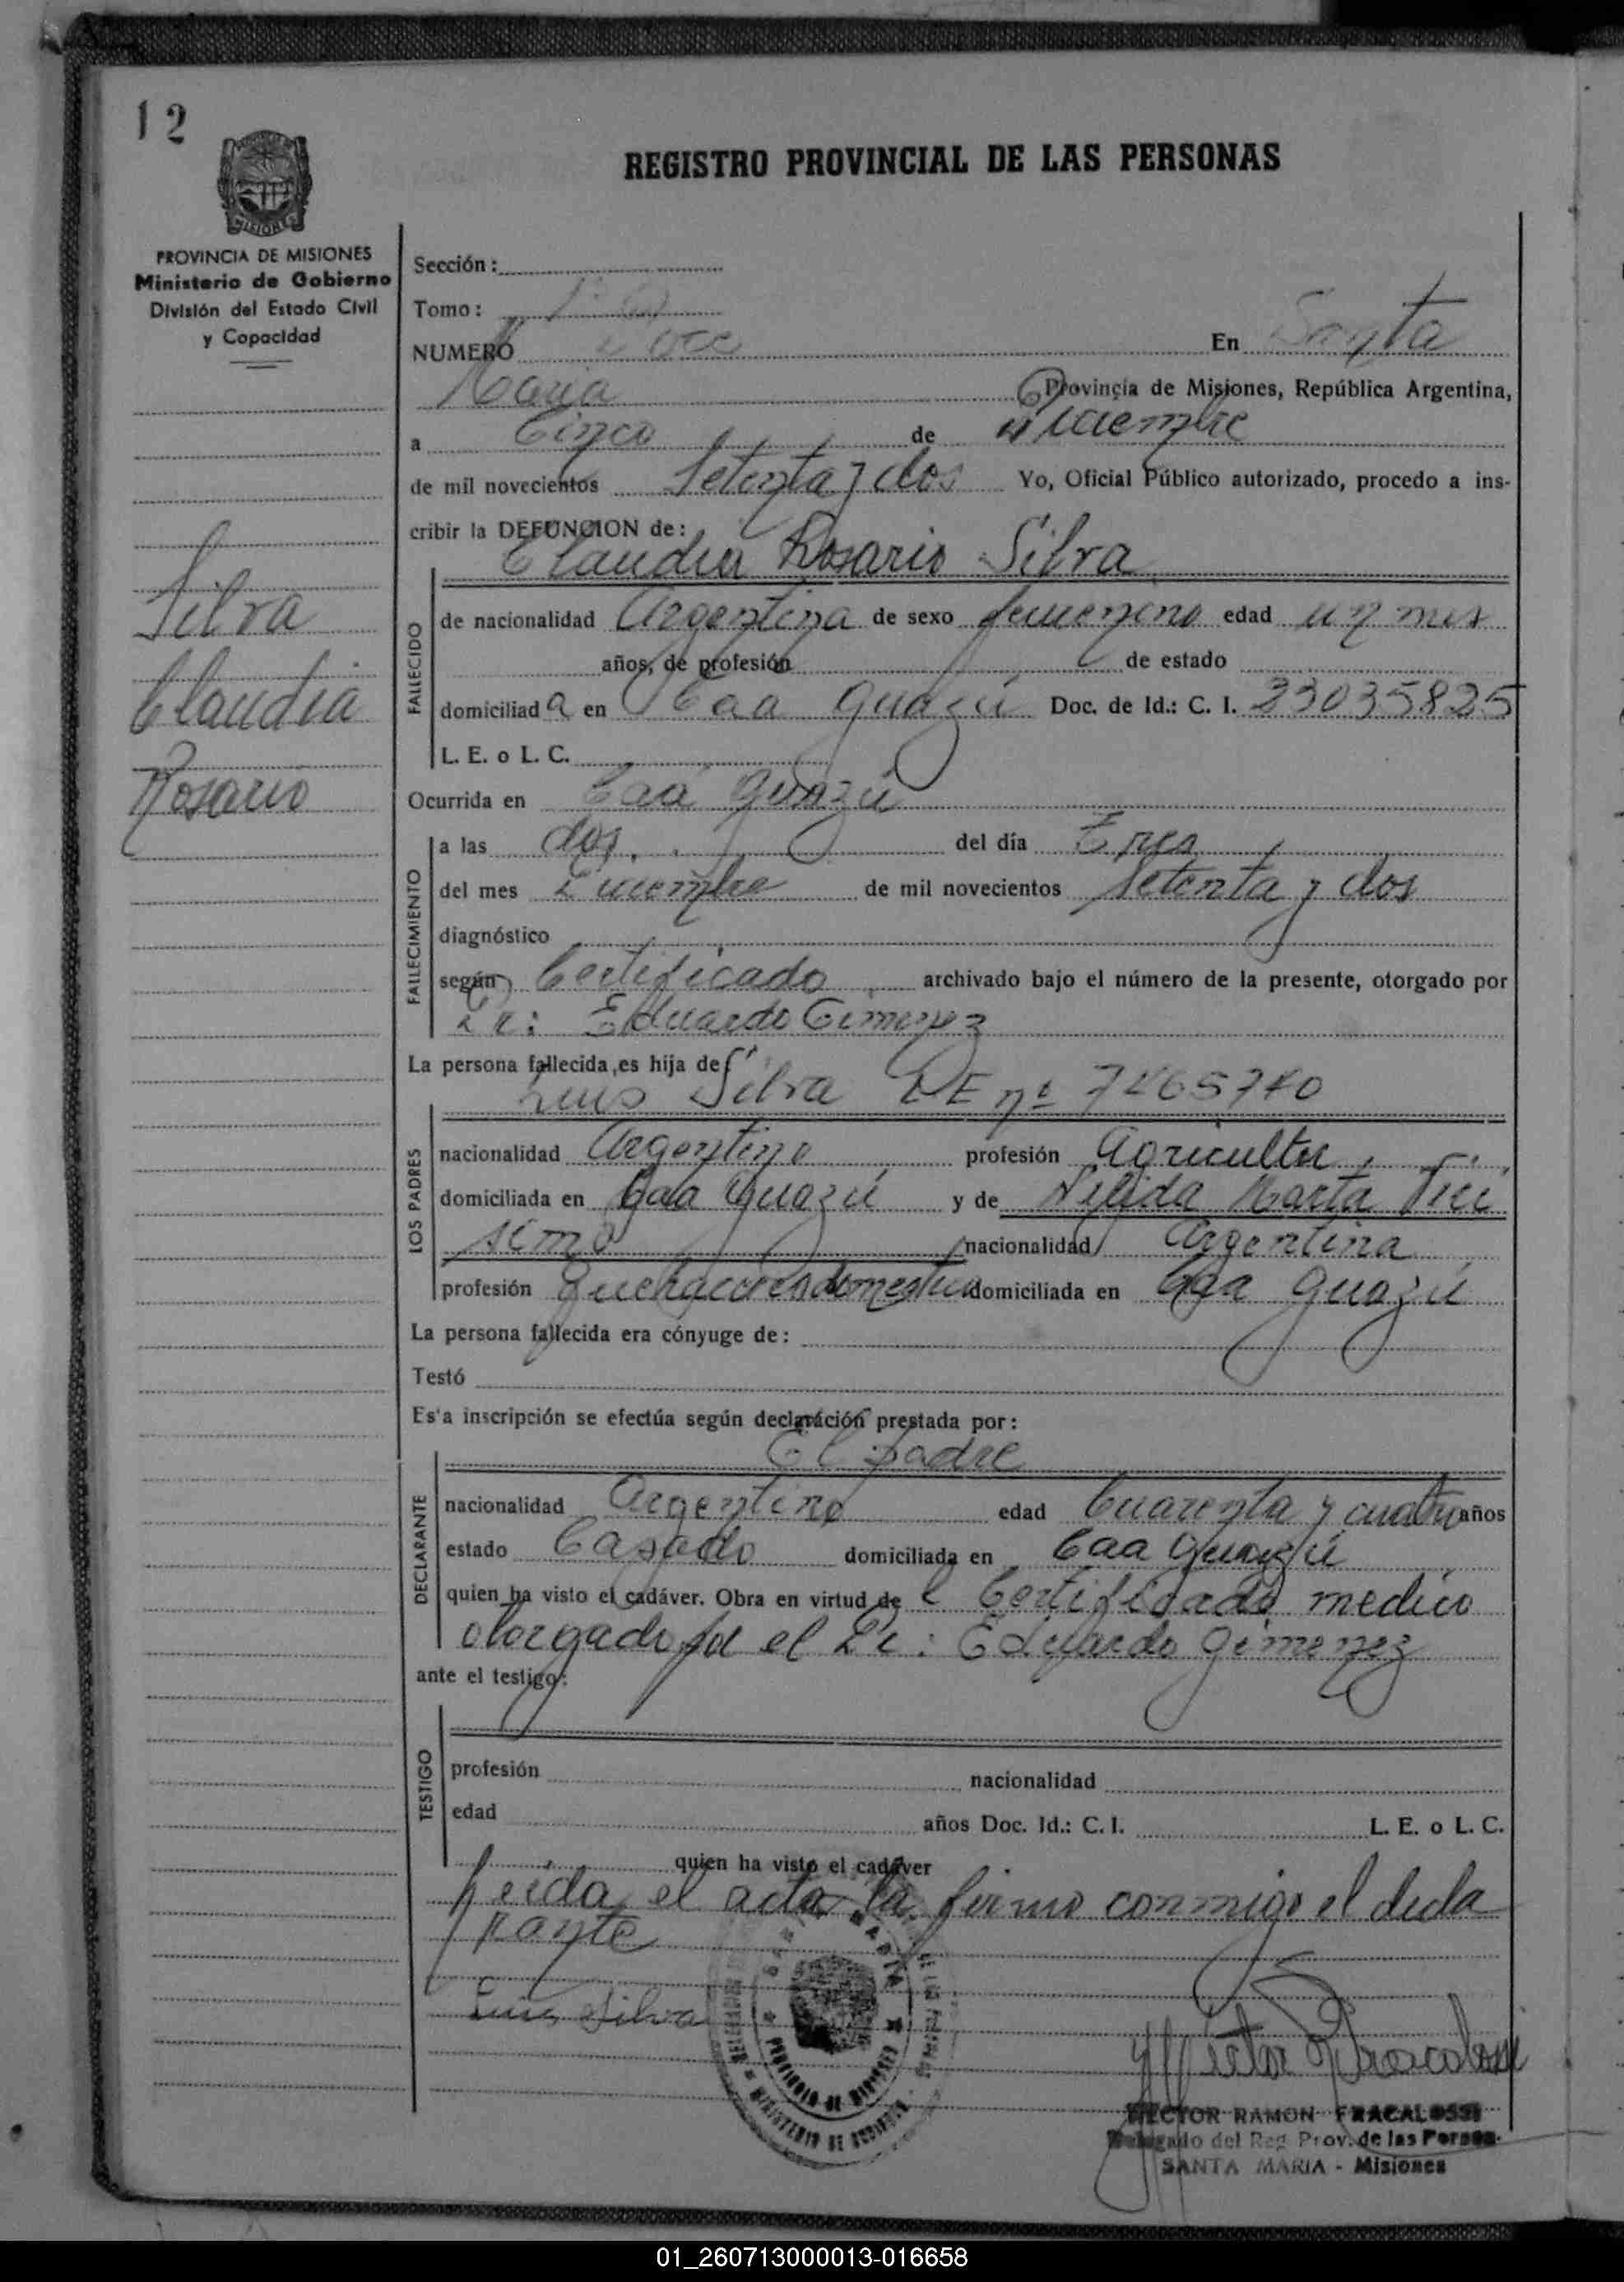 12
REGISTRO PROVINCIAL DE LAS PERSONAS
MISIONES
PROVINCIA DE MISIONES
Ministerio de Gobierno
División del Estado Civil
y Capacidad
Silva
Claudia
Rosario
Sección:
Tomo: 1º
NUMERO Doce En Santa
Maria Provincia de Misiones, República Argentina,
a Cinco de Diciembre
de mil novecientos Setenta y dos Yo, Oficial Público autorizado, procedo a ins-
cribir la DEFUNCION de:
Claudia Rosario Silva
FALLECIDO
de nacionalidad Argentina de sexo femenino edad un mes
años, de profesión de estado
domiciliad a en Caa Guazú Doc. de Id.: C. I. 23035825
L. E. o L. C.
Ocurrida en Caá Guazú
FALLECIMIENTO
a las dos. del día Tres
del mes Diciembre de mil novecientos Setenta y dos
diagnóstico
según Certificado archivado bajo el número de la presente, otorgado por
Dr: Eduardo Gimenez
La persona fallecida, es hija de
Luis Silva LE nº
LOS PADRES
nacionalidad Argentino profesión Agricultor
domiciliada en Caa Guazú y de Marta
simo nacionalidad Argentina
profesión Quehaceres domesticos domiciliada en Caa Guazú
La persona fallecida era cónyuge de:
Testó
Es'a inscripción se efectúa según declaración prestada por:
El padre
DECLARANTE
nacionalidad Argentino edad Cuarenta y cuatro años
estado Casado domiciliada en Caa Guazú
quien ha visto el cadáver. Obra en virtud de l Certificado medico
otorgado por el Dr: Eduardo Gimenez
ante el testigo:
TESTIGO
profesión nacionalidad
edad años Doc. Id.: C. I. L. E. o L. C.
quien ha visto el cadáver
Leida el acta la firmo conmigo el decla
rante
Luis Silva
SANTA MARIA
MINISTERIO DE GOBIERNO
HECTOR RAMON FRACALOSSI
Delegado del Reg Prov. de las Person.
SANTA MARIA - Misiones
01_260713000013-016658